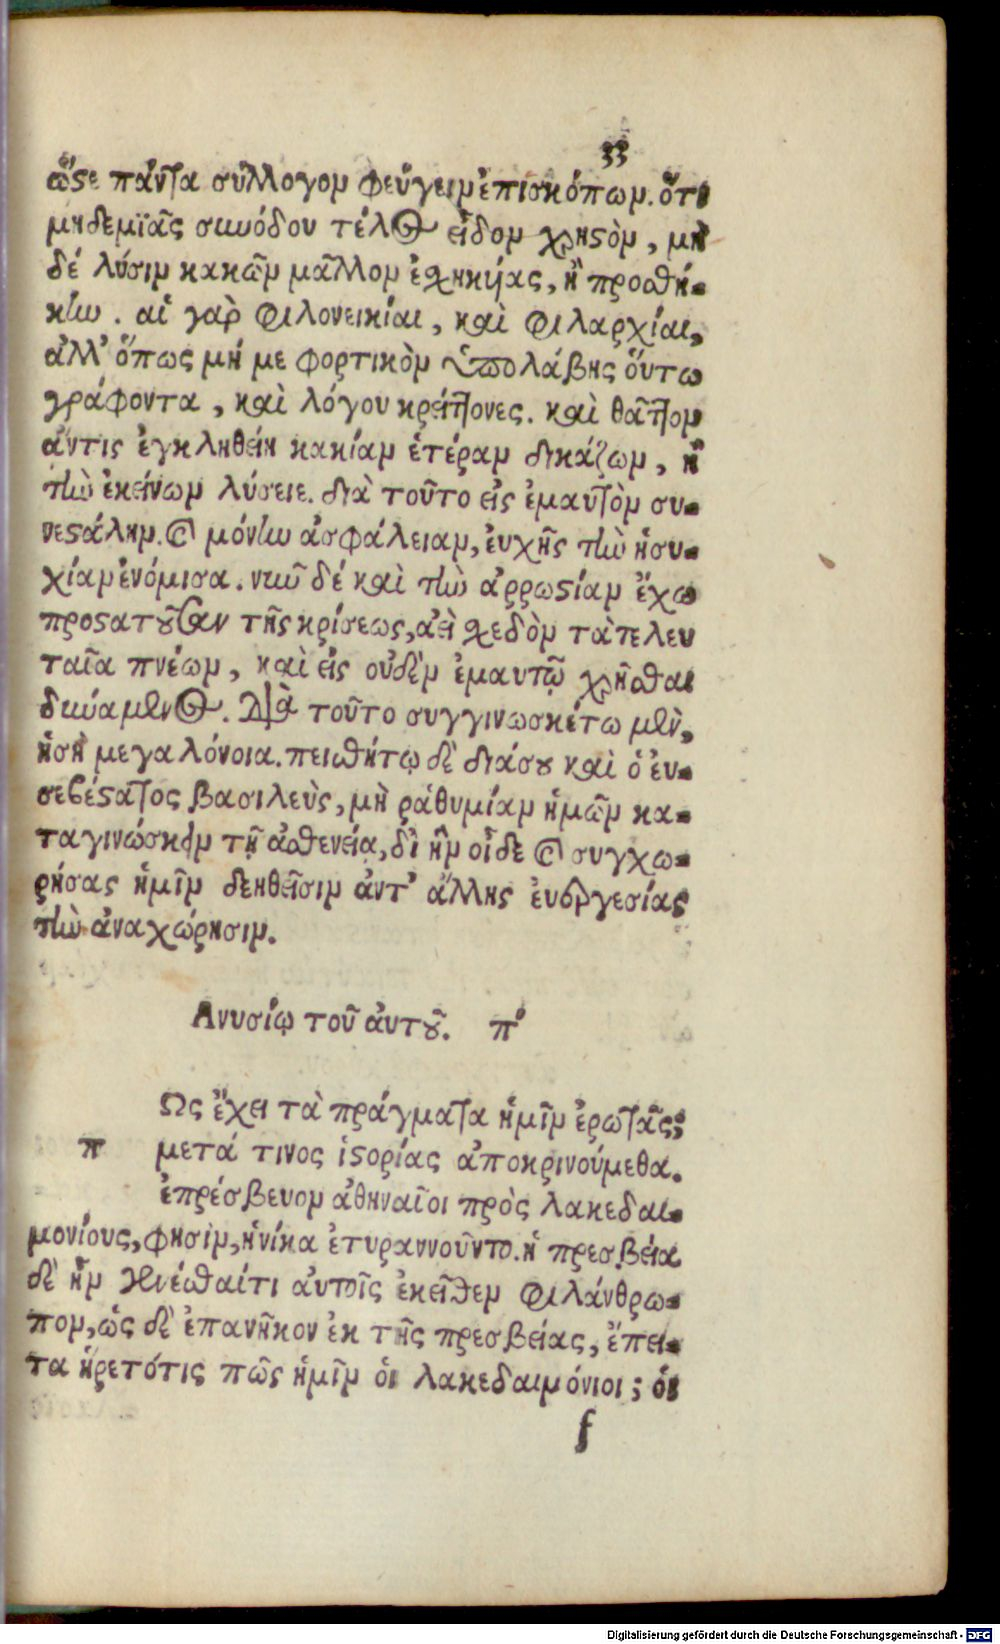 33
ὥστε πάντα σύλλογον φεύγειν ἐπισκόπων. ὅτι
μηδεμϊᾶς συνόδου τέλος εἶδον χρηστὸν, μὴ
δέ λύσιν κακῶν μᾶλλον ἐσχηκυίας, ἢ προσθή-
κην. αἱ γὰρ φιλονεικίαι, καὶ φιλαρχίαι,
ἀλλ' ὅπως μή με φορτικὸν ὑπολάβης ὅυτω
γράφοντα, καὶ λόγου κρείττονες. καὶ θᾶττον
ἄντις ἐγκληθείη κακίαν ἑτέραν δικάζων, ἢ
τὴν ἐκείνων λύσειε. διὰ τοῦτο εἰς ἐμαυτὸν συ-
νεστάλην. καὶ μόνην ἀσφάλειαν, ἐυχῆς τὴν ἡσυ-
χίαν ἐνόμισα. νῦν δέ καὶ τὴν ἀρρωστίαν ἔχω
προστατοῦσαν τῆς κρίσεως, ἀεὶ σχεδὸν τὰ τελευ
ταῖα πνέων, καὶ εἰς οὐδὲν ἐμαυτῷ χρῆσθαι
δυνάμενος. Διὰ τοῦτο συγγινωσκέτω μὲν,
ἡσὴ μεγαλόνοια. πειθήτω δὲ διάσου καὶ ὁ ἐυ-
σεβέστατος βασιλεὺς, μὴ ῥάθυμίαν ἡμῶν κα-
ταγινώσκειν τῇ ἀσθενείᾳ, δἰ ἣν οἶδε καὶ συγχω-
ρήσας ἡμῖν δεηθεῖσιν ἀντ' ἄλλης ἐυεργεσίας
τὴν ἀναχώρησιν.
Ανυσίῳ τοῦ ἀυτοῦ. π'
Ως ἔχει τὰ πράγματα ἡμῖν ἐρωτᾶς;
π μετά τινος ἱστορίας ἀποκρινούμεθα.
ἐπρέσβευον ἀθηναῖοι πρὸς λακεδαι-
μονίους, φησὶν, ἡνίκα ἐτυραννοῦντο. ἡ πρεσβεία
δὲ ἦν γενέσθαί τι ἀυτοῖς ἐκεῖθεν φιλάνθρω-
πον, ὡς δὲ ἐπανῆκον ἐκ τῆς πρεσβείας, ἔπει-
τα ἤρετό τις πῶς ἡμῖν ὁι λακεδαιμόνιοι; ὁι
f
Digitalisierung gefördert durch die Deutsche Forschungsgemeinschaft - DFG